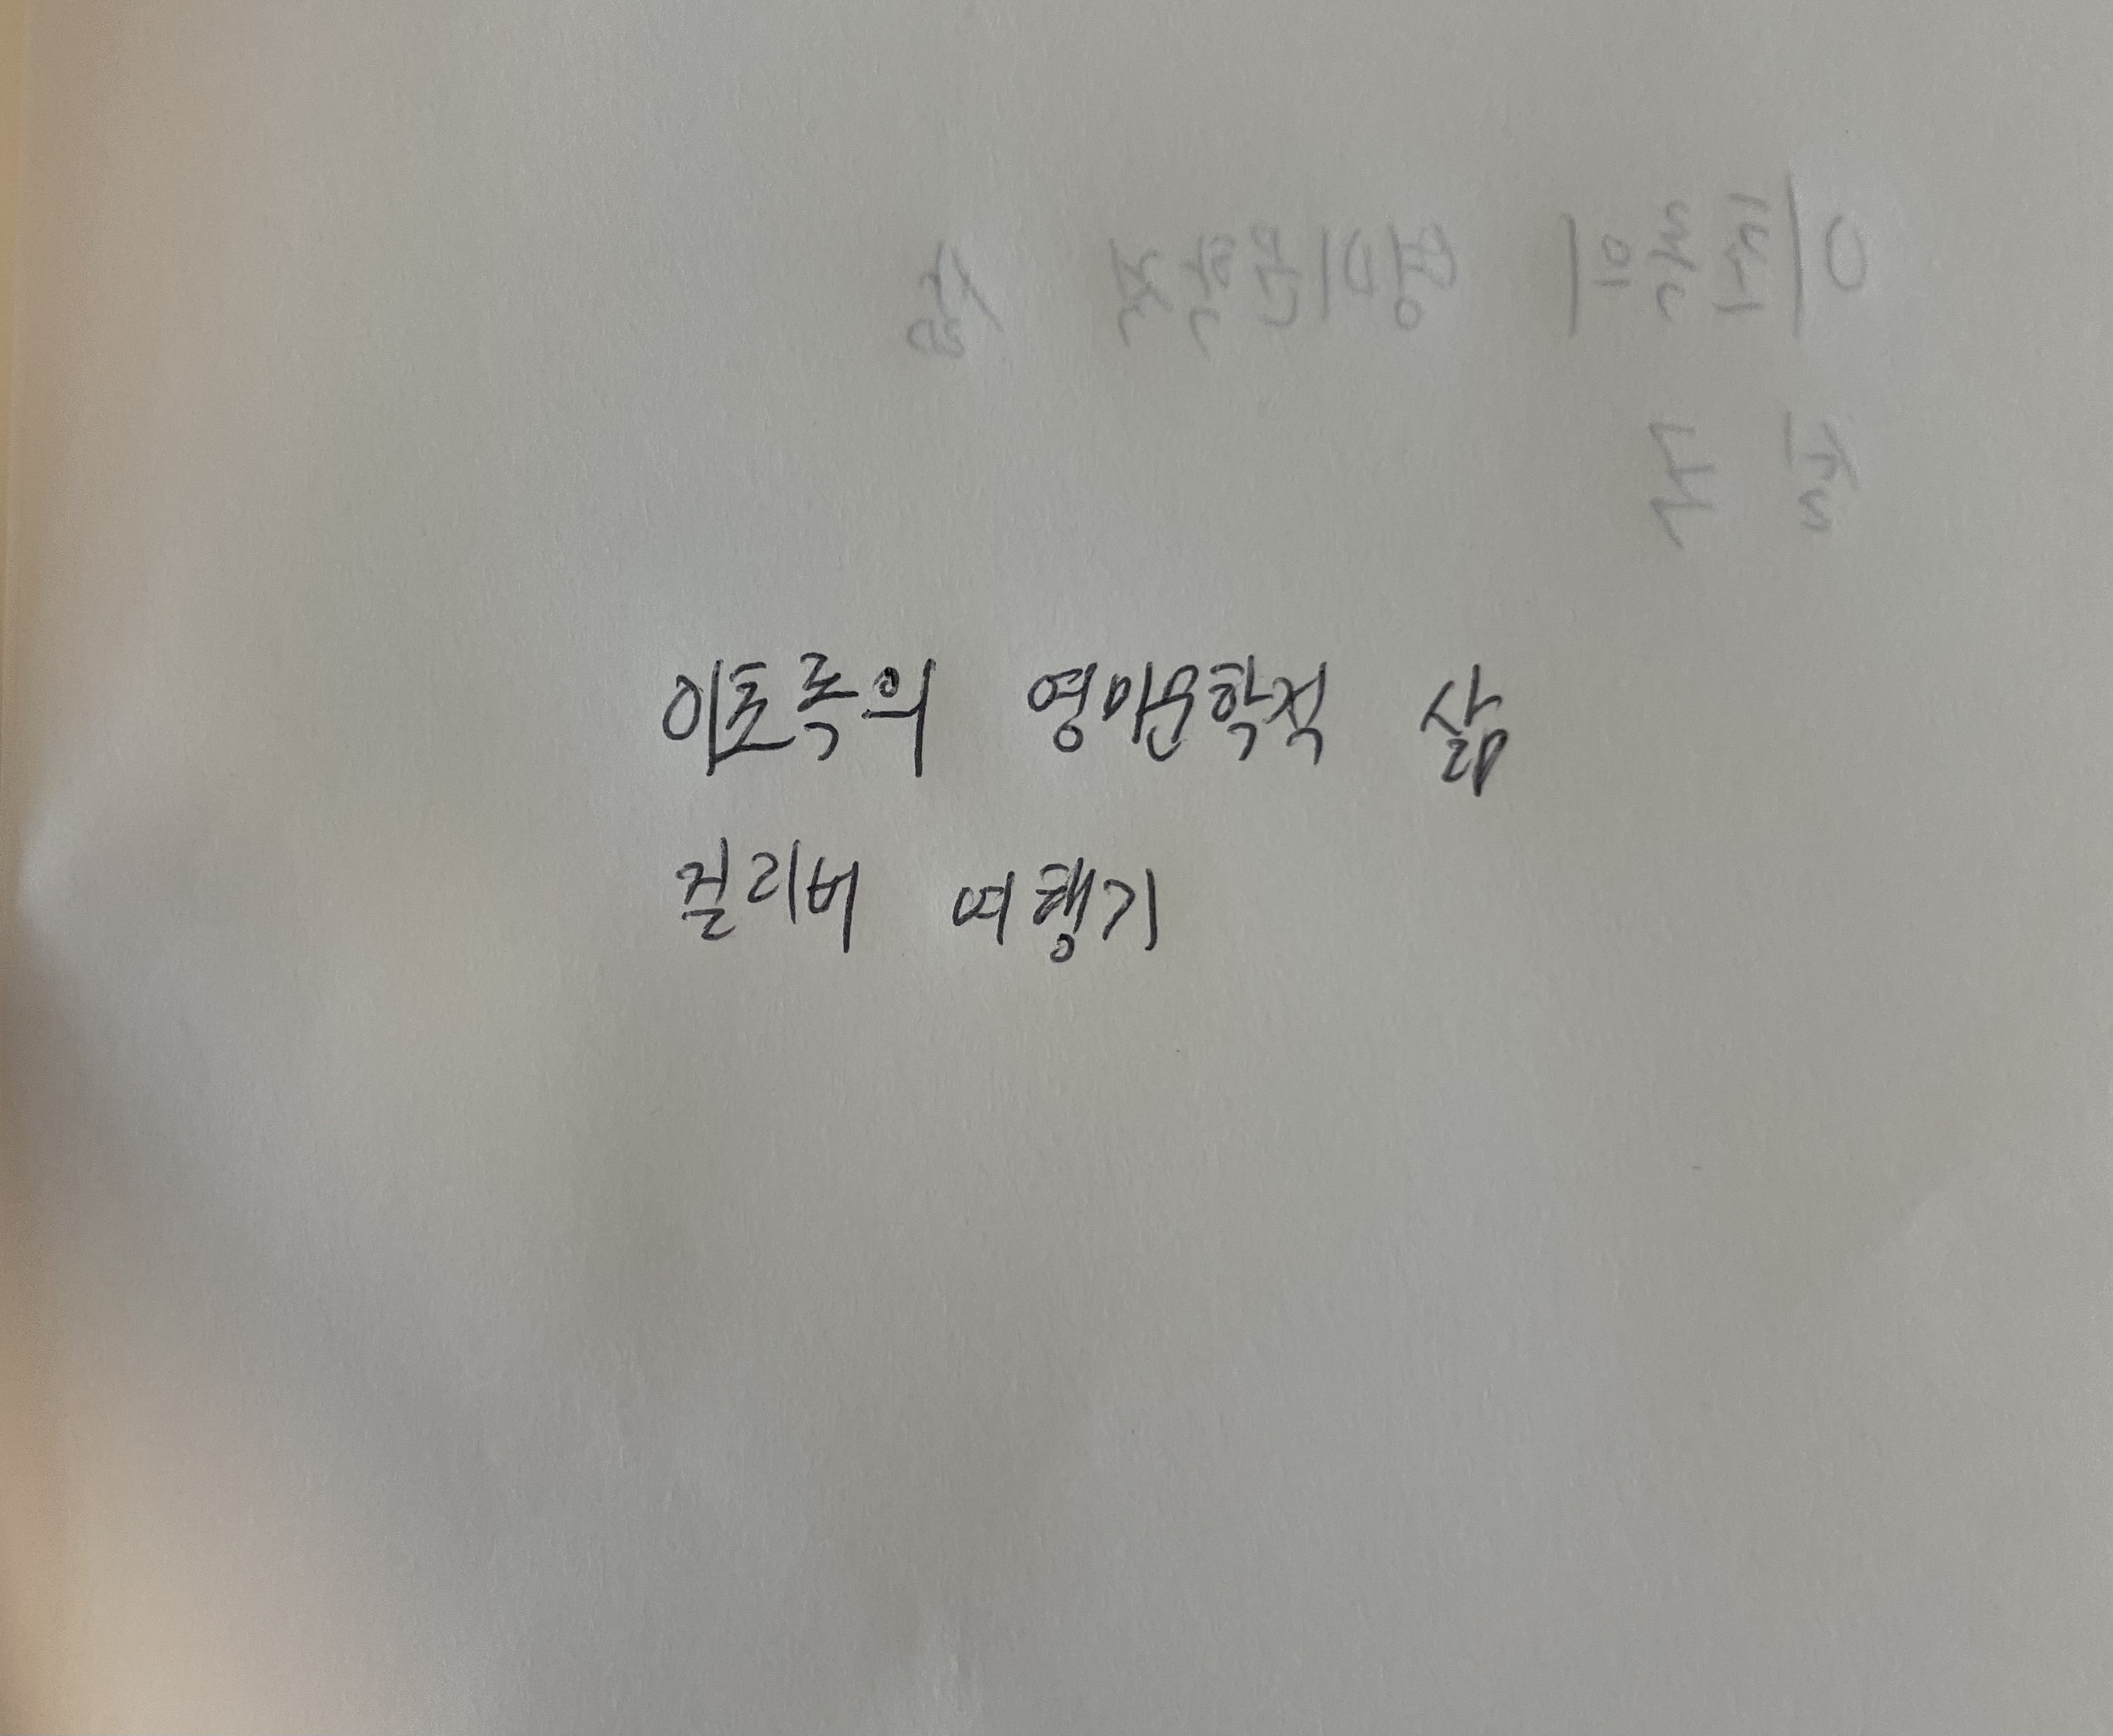 이토록의 영미문학적 삶
걸리버 여행기